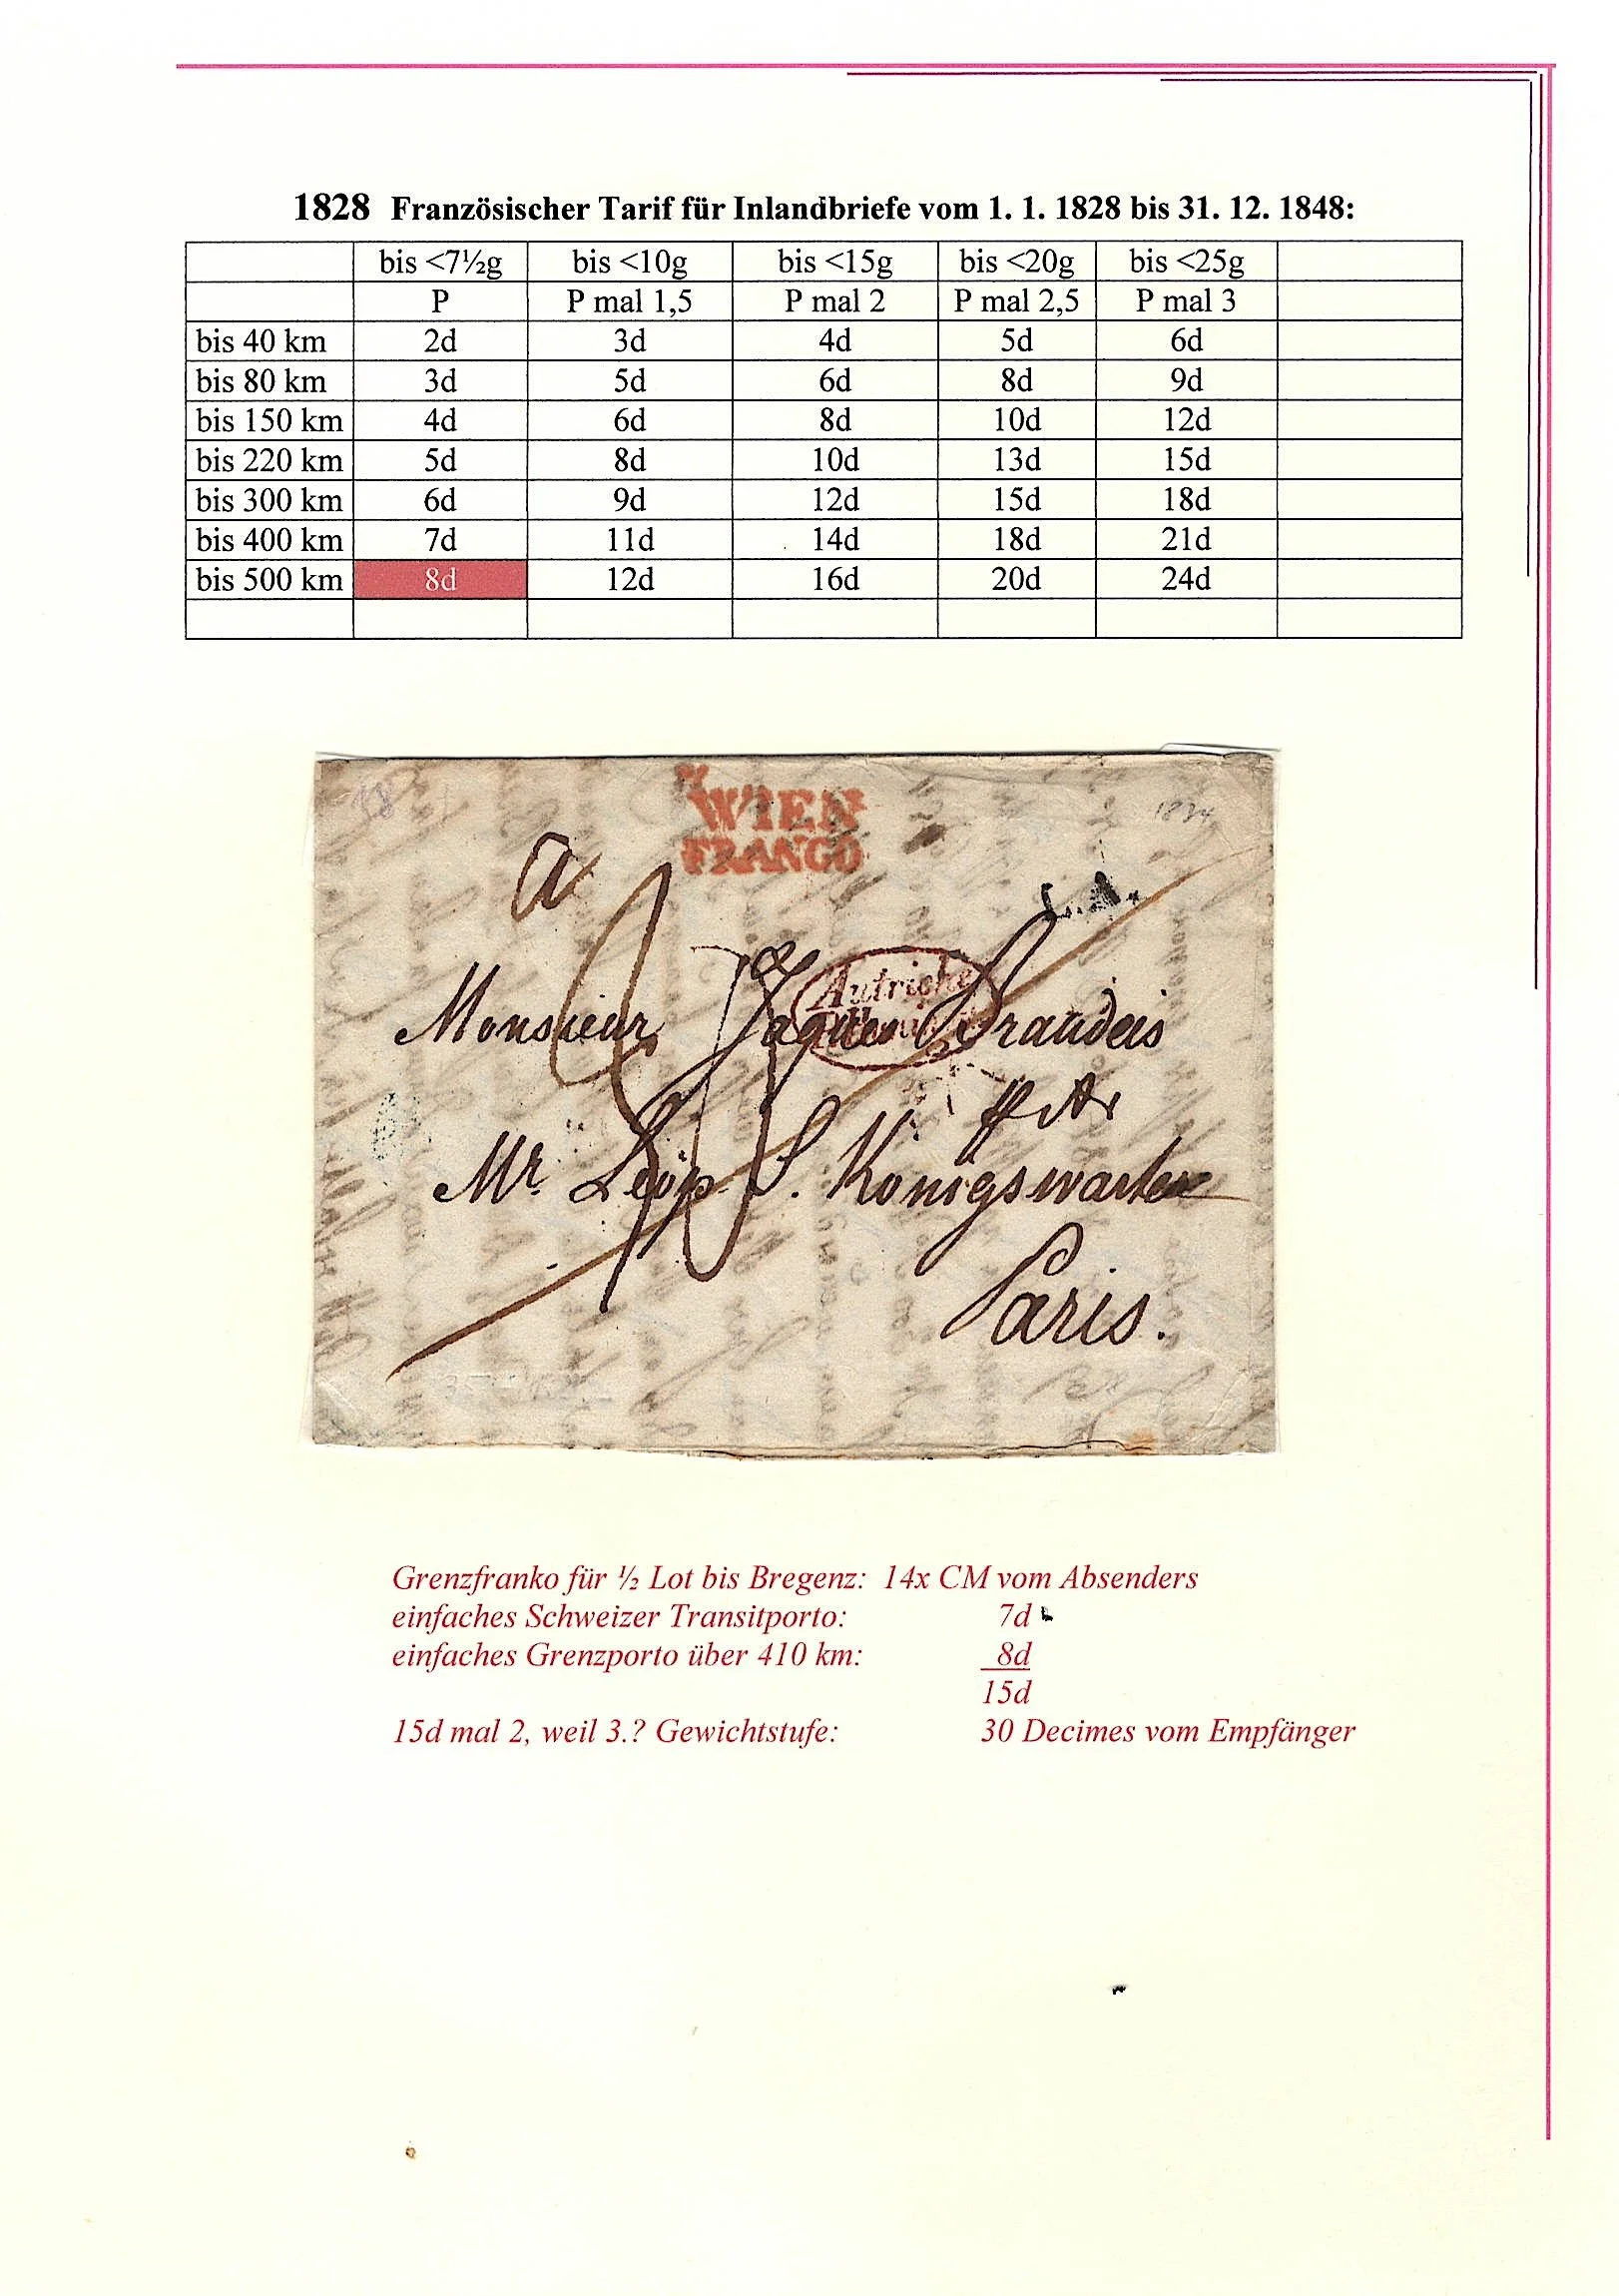 1828 Französischer Tarif für Inlandbriefe vom 1. 1. 1828 bis 31. 12. 1848:
bis <7½g bis <10g bis <15g bis <20g bis <25g
P P mal 1,5 P mal 2 P mal 2,5 P mal 3
bis 40 km 2d 3d 4d 5d 6d
bis 80 km 3d 5d 6d 8d 9d
bis 150 km 4d 6d 8d 10d 12d
bis 220 km 5d 8d 10d 13d 15d
bis 300 km 6d 9d 12d 15d 18d
bis 400 km 7d 11d 14d 18d 21d
bis 500 km 8d 12d 16d 20d 24d
WIEN
FRANCO
1834
a
L.A.
Autriche
Monsieur Jaques Brandeis
Mr. Leop. S. Königswarter
Paris.
Grenzfranko für ½ Lot bis Bregenz: 14x CM vom Absenders
einfaches Schweizer Transitporto: 7d
einfaches Grenzporto über 410 km: 8d
15d
15d mal 2, weil 3.? Gewichtstufe: 30 Decimes vom Empfänger